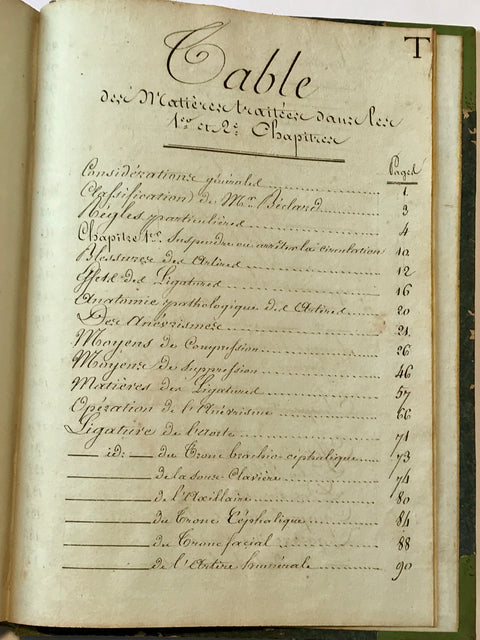 T
Table
des Matières traitées dans les
1er et 2e Chapitres
Pages
Considérations générales 1
Classification de Mr. Béclard 3
Règles particulières 4
Chapitre 1er. Suspendre ou arrêter la circulation 10
Blessures des Artères 12
Effets des Ligatures 16
Anatomie pathologique des Artères 20
Des Anévrismes 21
Moyens de Compression 26
Moyens de suppression 46
Matières des Ligatures 57
Opération de l'Anévrisme 66
Ligature de l'aorte 71
id: du Tronc brachio-céphalique 73
de la sous Clavière 74
de l'Axillaire 80
du Tronc Céphalique 84
du Tronc facial 88
de l'Artère humérale 90